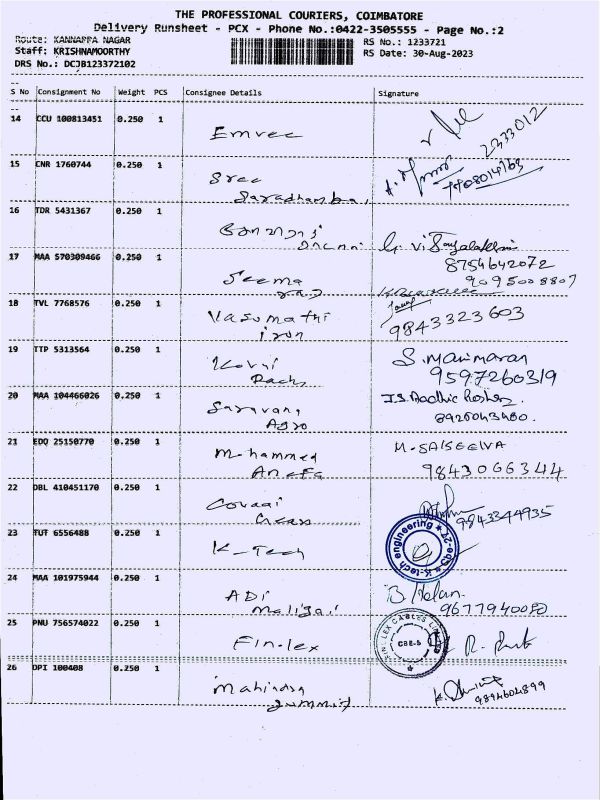 THE PROFESSIONAL COURIERS, COIMBATORE
Delivery Runsheet - PCX - Phone No.:0422-3505555 - Page No.:2
Route: KANNAPPA NAGAR
RS No.: 1233721
Staff: KRISHNAMOORTHY
RS Date: 30-Aug-2023
DRS No.: DCJB123372102
S No Consignment No Weight PCS Consignee Details Signature
14 CCU 100813451 0.250 1
Emvee
2333012
15 CNR 1760744 0.250 1
Sree
Saradhamba
16 TDR 5431367 0.250 1
17 MAA 570309466 0.250 1
8754642072
Seema
9095008807
18 TVL 7768576 0.250 1
Vasumathi
iron
9843323603
19 TTP 5313564 0.250 1
S. Manimaran
9597260319
20 MAA 104466026 0.250 1
Saravana
Agro
8926043480.
21 EDQ 25150770 0.250 1
Mohammed
9843066344
22 DBL 410451170 0.250 1
Covaai
9843344935
23 TUT 6556488 0.250 1
K-Tech
K-tech engineering * CBE-27 *
24 MAA 101975944 0.250 1
ADI
9677940080
25 PNU 756574022 0.250 1
Finolex
CBE-5
26 DPI 100408 0.250 1
Mahindra
Summit
9894604899